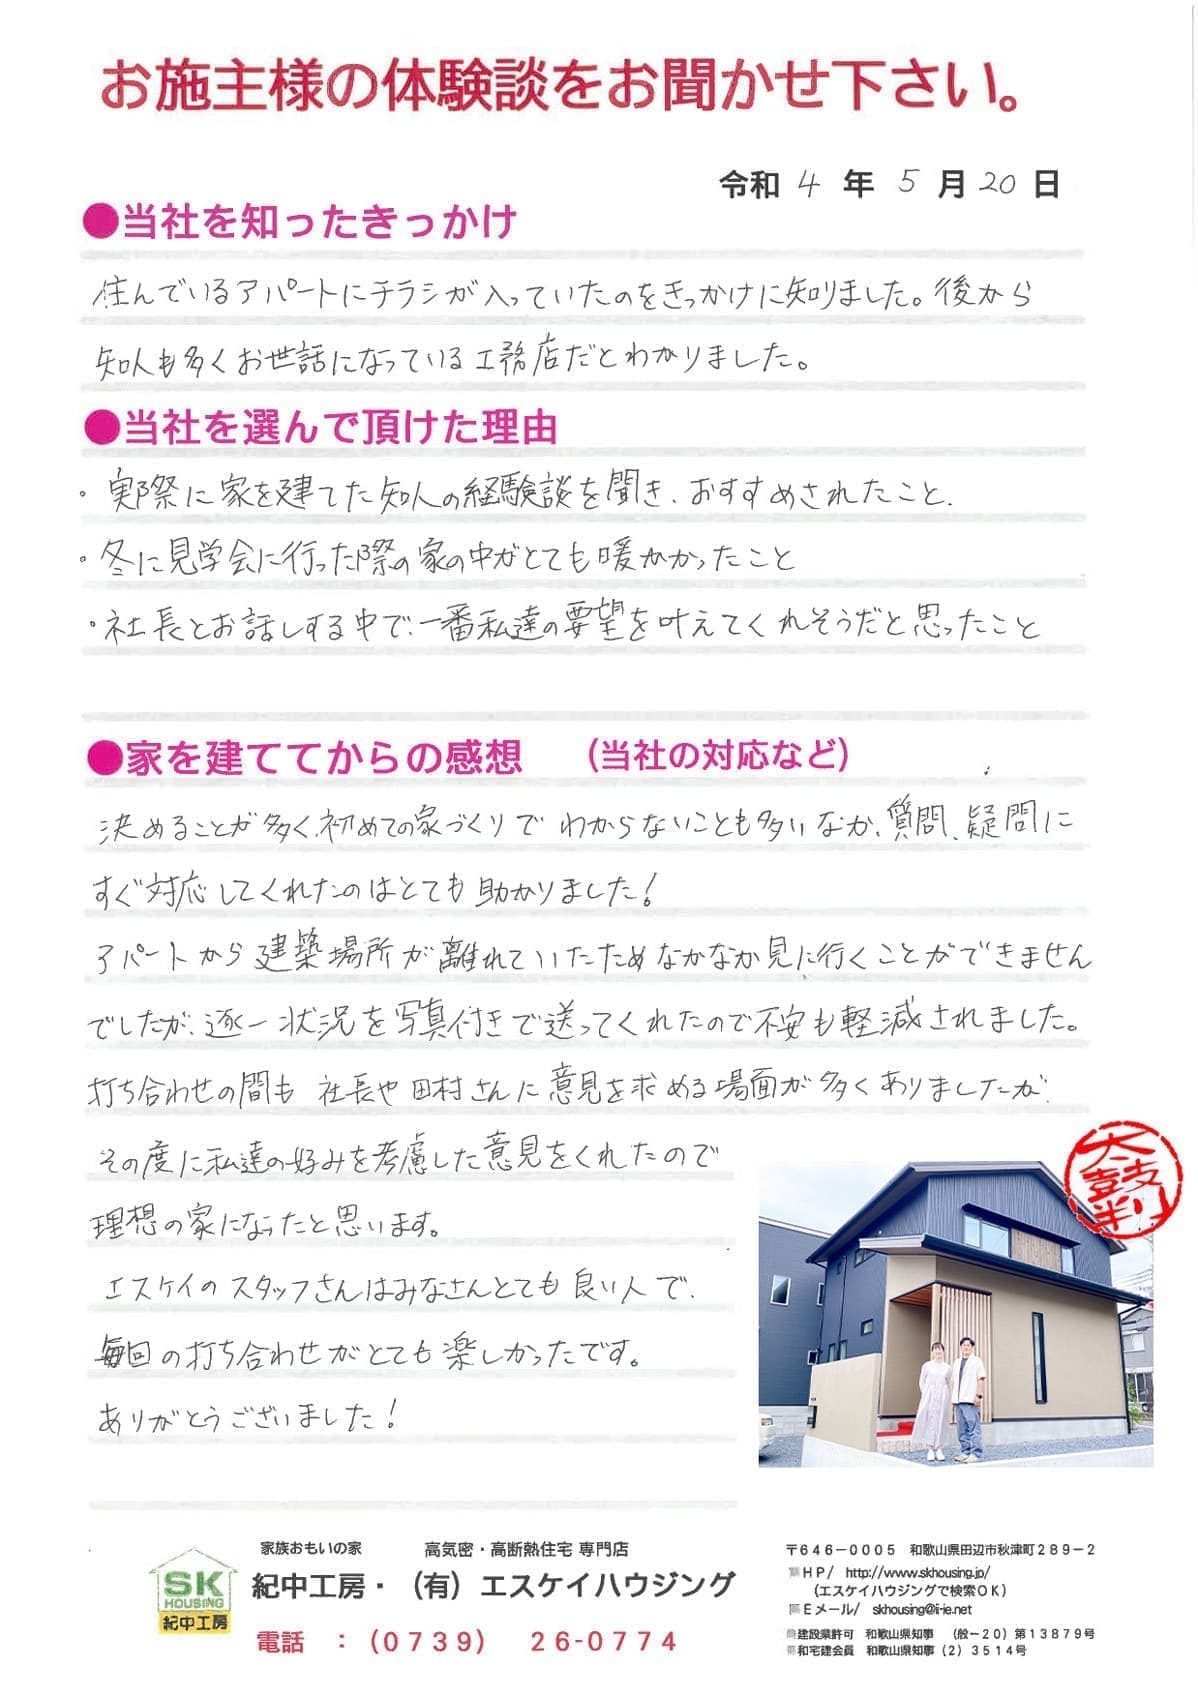 お施主様の体験談をお聞かせ下さい。
令和 4 年 5 月 20 日
●当社を知ったきっかけ
住んでいるアパートにチラシが入っていたのをきっかけに知りました。後から
知人も多くお世話になっている工務店だとわかりました。
●当社を選んで頂けた理由
・実際に家を建てた知人の経験談を聞き、おすすめされたこと、
・冬に見学会に行った際の家の中がとても暖かかったこと
・社長とお話しする中で、一番私達の要望を叶えてくれそうだと思ったこと
●家を建ててからの感想 （当社の対応など）
決めることが多く、初めての家づくりでわからないことも多いなか、質問、疑問に
すぐ対応してくれたのはとても助かりました！
アパートから建築場所が離れていたためなかなか見に行くことができません
でしたが、逐一状況を写真付きで送ってくれたので不安も軽減されました。
打ち合わせの間も 社長や田村さんに意見を求める場面が多くありましたが、
その度に私達の好みを考慮した意見をくれたので
理想の家になったと思います。
エスケイのスタッフさんはみなさんとても良い人で、
毎回の打ち合わせがとても楽しかったです。
ありがとうございました！
太鼓判
SK
HOUSING
紀中工房
家族おもいの家 高気密・高断熱住宅 専門店
紀中工房・（有）エスケイハウジング
電話 ：（0739） 26-0774
〒646－0005 和歌山県田辺市秋津町289－2
HP/ http://www.skhousing.jp/
（エスケイハウジングで検索OK）
Eメール/ skhousing@ii-ie.net
建設業許可 和歌山県知事 （般－20）第13879号
和宅建会員 和歌山県知事（2）3514号